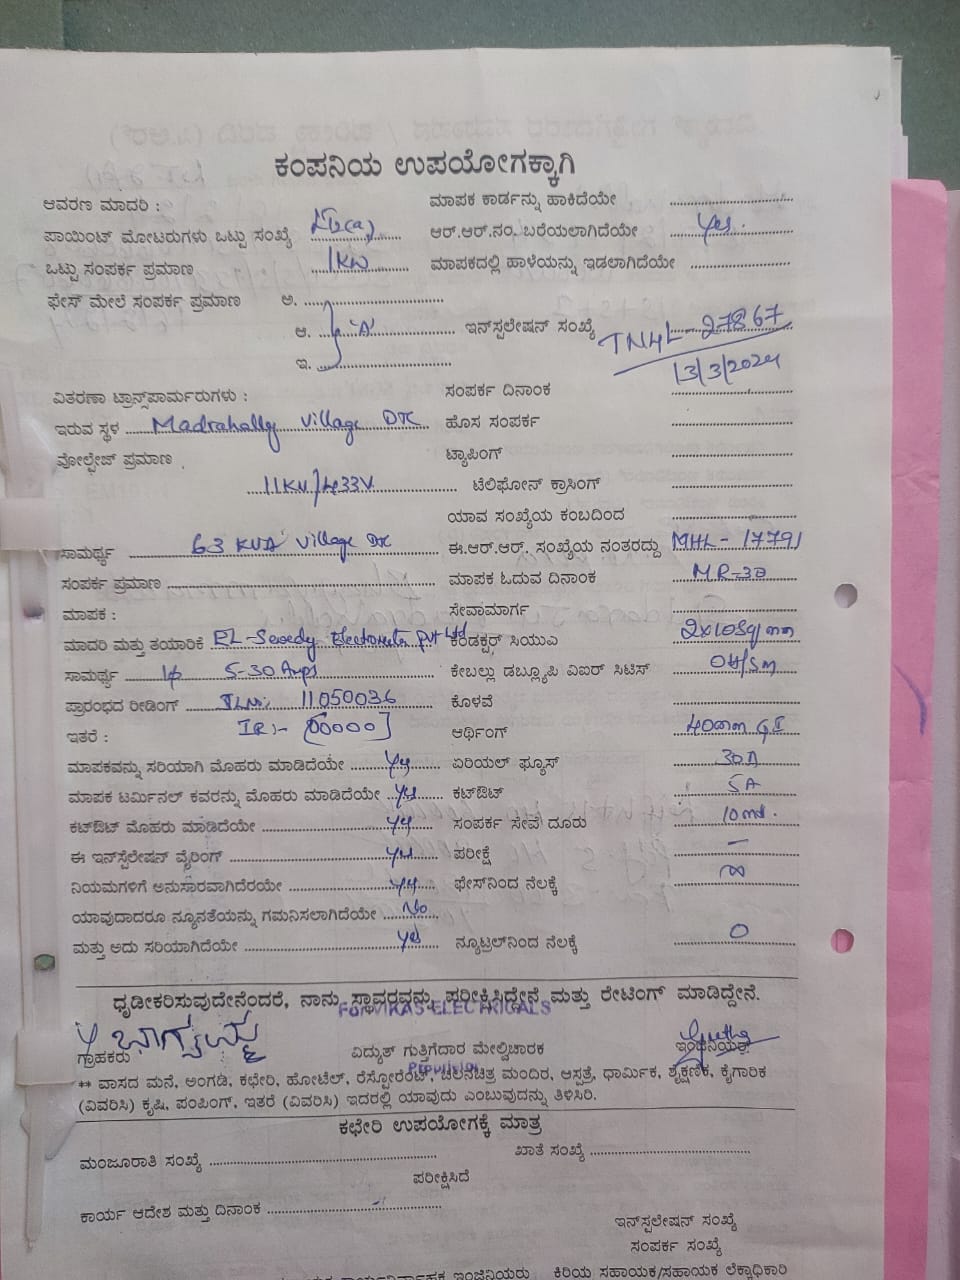 ಕಂಪನಿಯ ಉಪಯೋಗಕ್ಕಾಗಿ
ಆವರಣ ಮಾದರಿ : ಮಾಪಕ ಕಾರ್ಡನ್ನು ಹಾಕಿದೆಯೇ
ಪಾಯಿಂಟ್ ಮೋಟರುಗಳು ಒಟ್ಟು ಸಂಖ್ಯೆ ಆರ್.ಆರ್.ನಂ. ಬರೆಯಲಾಗಿದೆಯೇ Yes.
ಒಟ್ಟು ಸಂಪರ್ಕ ಪ್ರಮಾಣ 1KW ಮಾಪಕದಲ್ಲಿ ಹಾಳೆಯನ್ನು ಇಡಲಾಗಿದೆಯೇ
ಫೇಸ್ ಮೇಲೆ ಸಂಪರ್ಕ ಪ್ರಮಾಣ ಅ.
ಆ. 'A' ಇನ್‌ಸ್ಟಲೇಷನ್ ಸಂಖ್ಯೆ TNHL-27867
ಇ. 13/3/2024
ವಿತರಣಾ ಟ್ರಾನ್ಸ್‌ಪಾರ್ಮರುಗಳು : ಸಂಪರ್ಕ ದಿನಾಂಕ
ಇರುವ ಸ್ಥಳ Madrahally Village DTC ಹೊಸ ಸಂಪರ್ಕ
ವೋಲ್ಟೇಜ್ ಪ್ರಮಾಣ ಟ್ಯಾಪಿಂಗ್
11KV/433V ಟೆಲಿಫೋನ್ ಕ್ರಾಸಿಂಗ್
ಯಾವ ಸಂಖ್ಯೆಯ ಕಂಬದಿಂದ
ಸಾಮರ್ಥ್ಯ 63 KVA Village ಈ.ಆರ್.ಆರ್. ಸಂಖ್ಯೆಯ ನಂತರದ್ದು MHL-17791
ಸಂಪರ್ಕ ಪ್ರಮಾಣ ಮಾಪಕ ಓದುವ ದಿನಾಂಕ MR-30
ಮಾಪಕ : ಸೇವಾಮಾರ್ಗ
ಮಾದರಿ ಮತ್ತು ತಯಾರಿಕೆ Pvt Ltd ಕಂಡಕ್ಟರ್ ಸಿಯುಎ 2x10Sq/mm
ಸಾಮರ್ಥ್ಯ 1φ 5-30 Amps ಕೇಬಲ್ಲು ಡಬ್ಲ್ಯೂಪಿ ವಿಐಆರ್ ಸಿಟಿಸ್
ಪ್ರಾರಂಭದ ರೀಡಿಂಗ್ 11050036 ಕೊಳವೆ
ಇತರೆ : IR:- [00000] ಆರ್ಥಿಂಗ್ 40mm GI
ಮಾಪಕವನ್ನು ಸರಿಯಾಗಿ ಮೊಹರು ಮಾಡಿದೆಯೇ Yes ಏರಿಯಲ್ ಫ್ಯೂಸ್ 30A
ಮಾಪಕ ಟರ್ಮಿನಲ್ ಕವರನ್ನು ಮೊಹರು ಮಾಡಿದೆಯೇ Yes ಕಟ್‌ಔಟ್ 5A
ಕಟ್‌ಔಟ್ ಮೊಹರು ಮಾಡಿದೆಯೇ Yes ಸಂಪರ್ಕ ಸೇವೆ ದೂರು 10
ಈ ಇನ್‌ಸ್ಟೆಲೇಷನ್ ವೈರಿಂಗ್ Yes ಪರೀಕ್ಷೆ –
ನಿಯಮಗಳಿಗೆ ಅನುಸಾರವಾಗಿದೆರಯೇ Yes ಫೇಸ್‌ನಿಂದ ನೆಲಕ್ಕೆ ∞
ಯಾವುದಾದರೂ ನ್ಯೂನತೆಯನ್ನು ಗಮನಿಸಲಾಗಿದೆಯೇ No
ಮತ್ತು ಅದು ಸರಿಯಾಗಿದೆಯೇ Yes ನ್ಯೂಟ್ರಲ್‌ನಿಂದ ನೆಲಕ್ಕೆ 0
ಧೃಡೀಕರಿಸುವುದೇನೆಂದರೆ, ನಾನು ಸ್ಥಾವರವನ್ನು ಪರೀಕ್ಷಿಸಿದ್ದೇನೆ ಮತ್ತು ರೇಟಿಂಗ್ ಮಾಡಿದ್ದೇನೆ.
For VIKAS ELECTRICALS
ಭಾಗ್ಯಮ್ಮ
ಗ್ರಾಹಕರು ವಿದ್ಯುತ್ ಗುತ್ತಿಗೆದಾರ ಮೇಲ್ವಿಚಾರಕ ಇಂಜಿನಿಯರ್
** ವಾಸದ ಮನೆ, ಅಂಗಡಿ, ಕಛೇರಿ, ಹೋಟೆಲ್, ರೆಸ್ಟೋರೆಂಟ್, ಚಲನಚಿತ್ರ ಮಂದಿರ, ಆಸ್ಪತ್ರೆ, ಧಾರ್ಮಿಕ, ಶೈಕ್ಷಣಿಕ, ಕೈಗಾರಿಕ
(ವಿವರಿಸಿ) ಕೃಷಿ, ಪಂಪಿಂಗ್, ಇತರೆ (ವಿವರಿಸಿ) ಇದರಲ್ಲಿ ಯಾವುದು ಎಂಬುವುದನ್ನು ತಿಳಿಸಿರಿ.
ಕಛೇರಿ ಉಪಯೋಗಕ್ಕೆ ಮಾತ್ರ
ಮಂಜೂರಾತಿ ಸಂಖ್ಯೆ ಖಾತೆ ಸಂಖ್ಯೆ
ಪರೀಕ್ಷಿಸಿದೆ
ಕಾರ್ಯ ಆದೇಶ ಮತ್ತು ದಿನಾಂಕ
ಇನ್‌ಸ್ಟಲೇಷನ್ ಸಂಖ್ಯೆ
ಸಂಪರ್ಕ ಸಂಖ್ಯೆ
ಇಂಜಿನಿಯರು ಕಿರಿಯ ಸಹಾಯಕ/ಸಹಾಯಕ ಲೆಕ್ಕಾಧಿಕಾರಿ